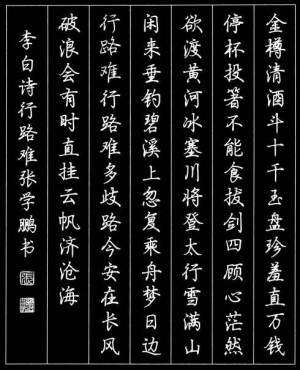 金樽清酒斗十千玉盘珍羞直万钱
停杯投箸不能食拔剑四顾心茫然
欲渡黄河冰塞川将登太行雪满山
闲来垂钓碧溪上忽复乘舟梦日边
行路难行路难多歧路今安在长风
破浪会有时直挂云帆济沧海
李白诗行路难张学鹏书